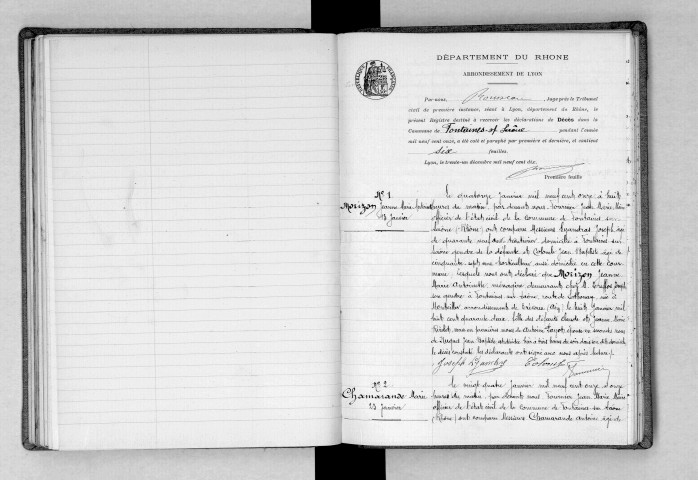 DÉPARTEMENT DU RHONE
ARRONDISSEMENT DE LYON
Par-nous, Juge près le Tribunal
civil de première instance, séant à Lyon, département du Rhône, le
présent Registre destiné à recevoir les déclarations de Décès dans la
Commune de Fontaines-s/-Saône pendant l'année
mil neuf cent onze, a été coté et paraphé par première et dernière, et contient
six feuilles.
Lyon, le trente-un décembre mil neuf cent dix.
Première feuille
N° 1
Morizon Jeanne Marie
13 Janvier
Le quatorze janvier mil neuf cent onze à huit
heures du matin, par devant nous Tournier Jean Marie Maire
officier de l'état civil de la commune de Fontaines sur
Saône (Rhône) ont comparu Messieurs Joseph âgé
de quarante neuf ans domicilié à Fontaines sur
Saône gendre de la défunte et Colomb Jean Baptiste âgé de
cinquante sept ans horticulteur aussi domicilié en cette com-
mune, lesquels nous ont déclaré que Morizon Jeanne
Marie Antoinette, ménagère demeurant chez M. Joseph
son gendre à Fontaines sur Saône, route de née à
Montvillier arrondissement de Trévoux (Ain) le huit janvier mil
huit cent quarante deux, fille des défunts Claude et Jeanne Marie
veuve en premières noces de Antoine épouse en secondes noces
de Jean Baptiste est décédée hier à trois heures du soir dans son dit domicile
le décès constaté les déclarants ont signé avec nous après lecture.
Joseph Colomb Tournier
N° 2
Chamarande Marie
23 Janvier
Le vingt quatre janvier mil neuf cent onze à onze
heures du matin, par devant nous Tournier Jean Marie Maire
officier de l'état civil de la commune de Fontaines sur Saône
(Rhône) ont comparu Messieurs Chamarande Antoine âgé de